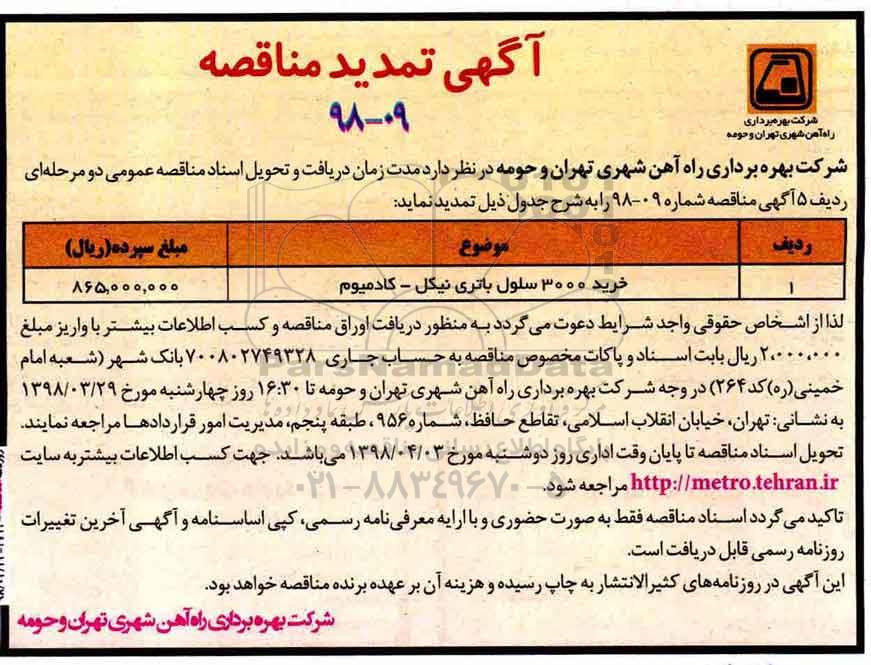 آگهی تمدید مناقصه
۹۸-۰۹
شرکت بهره‌برداری
راه‌آهن شهری تهران و حومه
شرکت بهره برداری راه آهن شهری تهران و حومه در نظر دارد مدت زمان دریافت و تحویل اسناد مناقصه عمومی دو مرحله‌ای
ردیف ۵ آگهی مناقصه شماره ۰۹-۹۸ را به شرح جدول ذیل تمدید نماید:
ردیف موضوع مبلغ سپرده(ریال)
۱ خرید ۳۰۰۰ سلول باتری نیکل - کادمیوم ۸۶۵,۰۰۰,۰۰۰
لذا از اشخاص حقوقی واجد شرایط دعوت می گردد به منظور دریافت اوراق مناقصه و کسب اطلاعات بیشتر با واریز مبلغ
۲,۰۰۰,۰۰۰ ریال بابت اسناد و پاکات مخصوص مناقصه به حساب جاری ۷۰۰۸۰۲۷۴۹۳۲۸ بانک شهر (شعبه امام
خمینی(ره) کد ۲۶۴) در وجه شرکت بهره برداری راه آهن شهری تهران و حومه تا ۱۶:۳۰ روز چهارشنبه مورخ ۱۳۹۸/۰۳/۲۹
به نشانی: تهران، خیابان انقلاب اسلامی، تقاطع حافظ، شماره ۹۵۶، طبقه پنجم، مدیریت امور قراردادها مراجعه نمایند.
تحویل اسناد مناقصه تا پایان وقت اداری روز دوشنبه مورخ ۱۳۹۸/۰۴/۰۳ می‌باشد. جهت کسب اطلاعات بیشتر به سایت
http://metro.tehran.ir مراجعه شود.
تاکید می گردد اسناد مناقصه فقط به صورت حضوری و با ارایه معرفی‌نامه رسمی، کپی اساسنامه و آگهی آخرین تغییرات
روزنامه رسمی قابل دریافت است.
این آگهی در روزنامه‌های کثیرالانتشار به چاپ رسیده و هزینه آن بر عهده برنده مناقصه خواهد بود.
شرکت بهره برداری راه‌آهن شهری تهران و حومه
ParsNamadData
۰۲۱-۸۸۳۴۹۶۷۰-۵